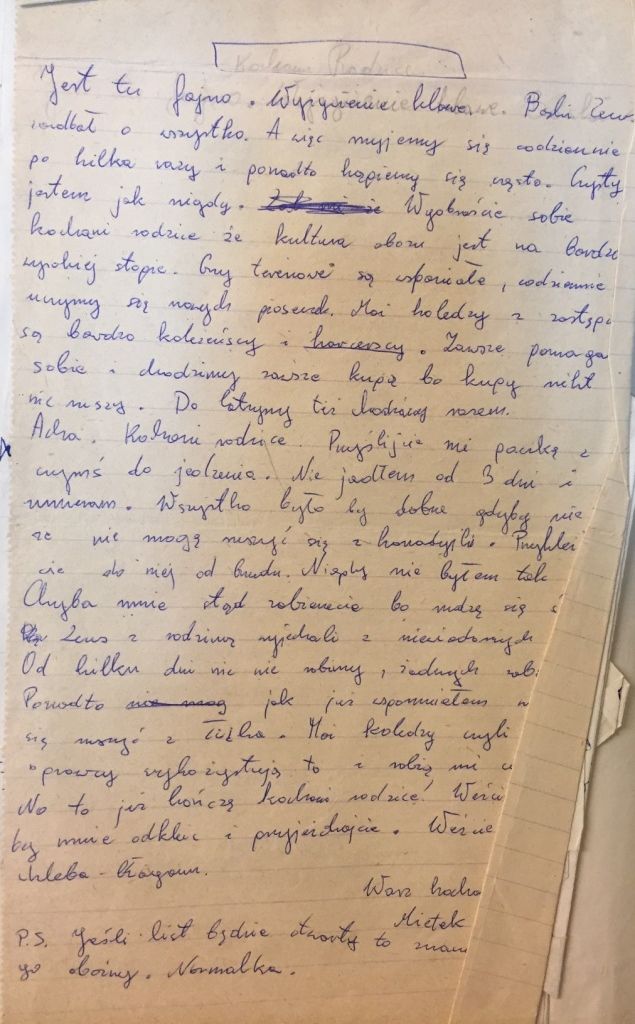 Kochani Rodzice
Jest tu fajno. Wyżywienie klawe. Boski Zeus
zadbał o wszystko. A więc myjemy się codziennie
po kilka razy i ponadto kąpiemy się często. Czysty
jestem jak nigdy. Wyobraźcie sobie
kochani rodzice że kultura obozu jest na bardzo
wysokiej stopie. Gry terenowe są wspaniałe, codziennie
uczymy się nowych piosenek. Moi koledzy z zastępu
są bardzo koleżeńscy i harcerscy. Zawsze pomaga
sobie i chodzimy zawsze kupą bo kupy nikt
nie ruszy. Do latryny też chodzimy razem.
Acha. Kochani rodzice. Przyślijcie mi paczkę z
czymś do jedzenia. Nie jadłem od 3 dni i
umieram. Wszystko było by dobrze gdyby nie
że nie mogę ruszyć się z kanadyjki. Przyklei
cie do niej od brudu. Nigdy nie byłem tak
Chyba mnie stąd zabierzecie bo nudzę się
Zeus z rodziną wyjechali z niewiadomych
Od kilku dni nic nie robimy, żadnych
Ponadto nie mog jak już wspomniałem n
się ruszyć z łóżka. Moi koledzy czyli
oprawcy wykożystują to i robią mi
No to już kończę kochani rodzice! Weźci
by mnie odkleic i przyjeżdżajcie. Weźcie
chleba - błagam.
Wasz kocha
Mietek
P.S. Jeśli list będzie otwarty to znaczy
go oboźny. Normalka.